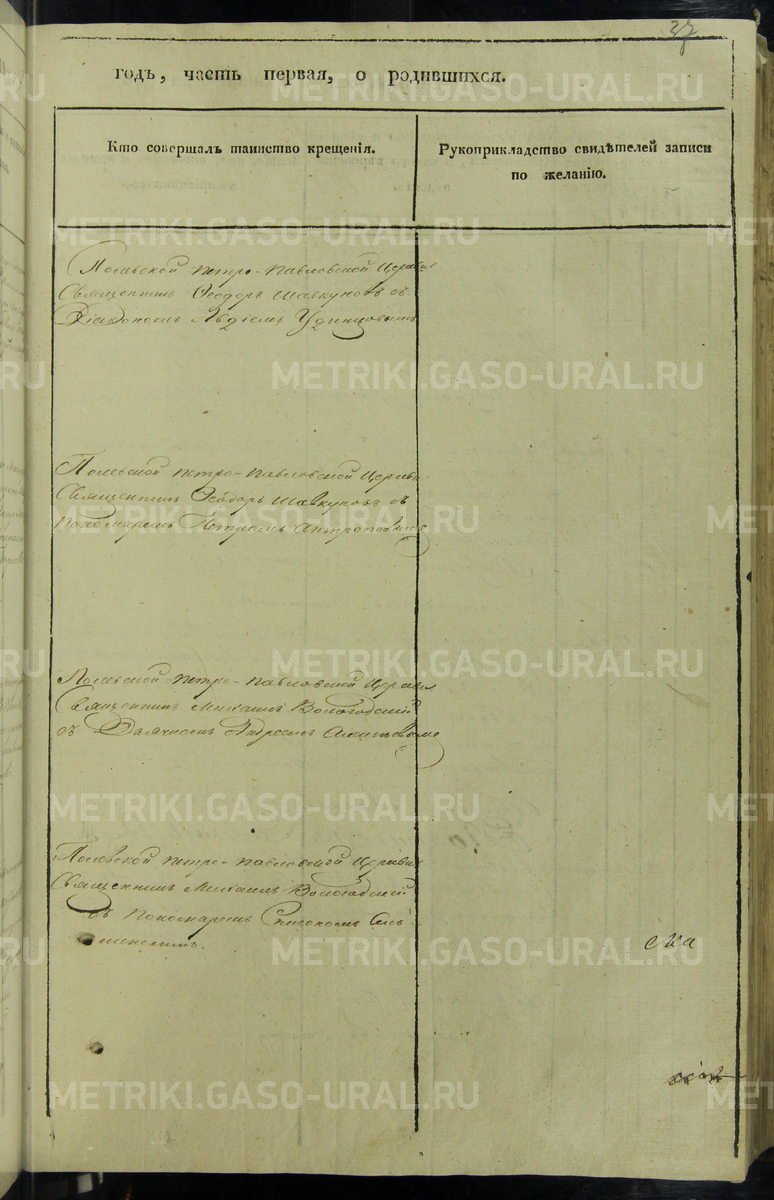 27
годъ, часть первая, о родившихся.
Кто совершалъ таинство крещенія.
Рукоприкладство свидѣтелей записи
по желанію.
Полевской Петро-Павловской Церкви
Священникъ Ѳеодоръ Шавкуновъ съ
Діакономъ Авдіемъ Удинцовымъ
Полевской Петро-Павловской Церкви
Священникъ Ѳеодоръ Шавкуновъ съ
Пономаремъ Петромъ
Полевской Петро-Павловской Церкви
Священникъ Михаилъ Вологодскій
съ Дьячкомъ Андреемъ
Полевской Петро-Павловской Церкви
Священникъ Михаилъ Вологодскій
съ Пономаремъ
METRIKI.GASO-URAL.RU